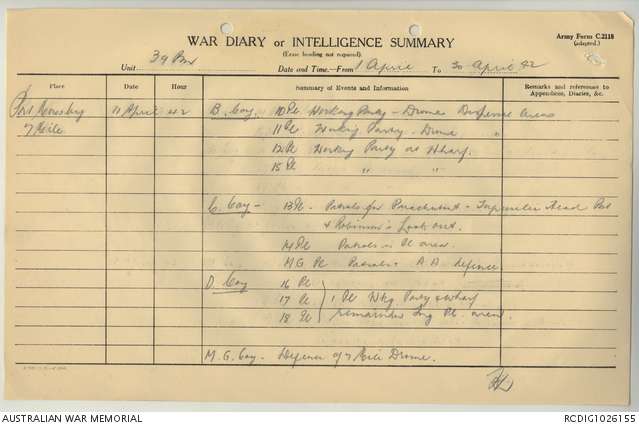 Army Form C.2118
(adapted.)
WAR DIARY or INTELLIGENCE SUMMARY
(Erase heading not required).
Unit 39 Bn Date and Time.—From 1 April To 30 April 42
Place Date Hour Summary of Events and Information Remarks and references to Appendices, Diaries, &c.
Port Moresby 11 April 42 B. Coy. 10 Pl Working Party – Drome Dispersal Areas
7 Mile 11 Pl Working Party – Drome "
12 Pl Working Party at Wharf.
15 Pl " "
C. Coy – 13 Pl – Patrols for Parachutist – Road Pt
& Robinson's Look out.
14 Pl Patrols in Pl area.
M.G. Pl Patrols & A.A. Defence
D. Coy 16 Pl
17 Pl 1 Pl Wkg Party Wharf
18 Pl remainder Pl. area.
M.G. Coy – Defence of 7 Mile Drome.
AUSTRALIAN WAR MEMORIAL RCDIG1026155